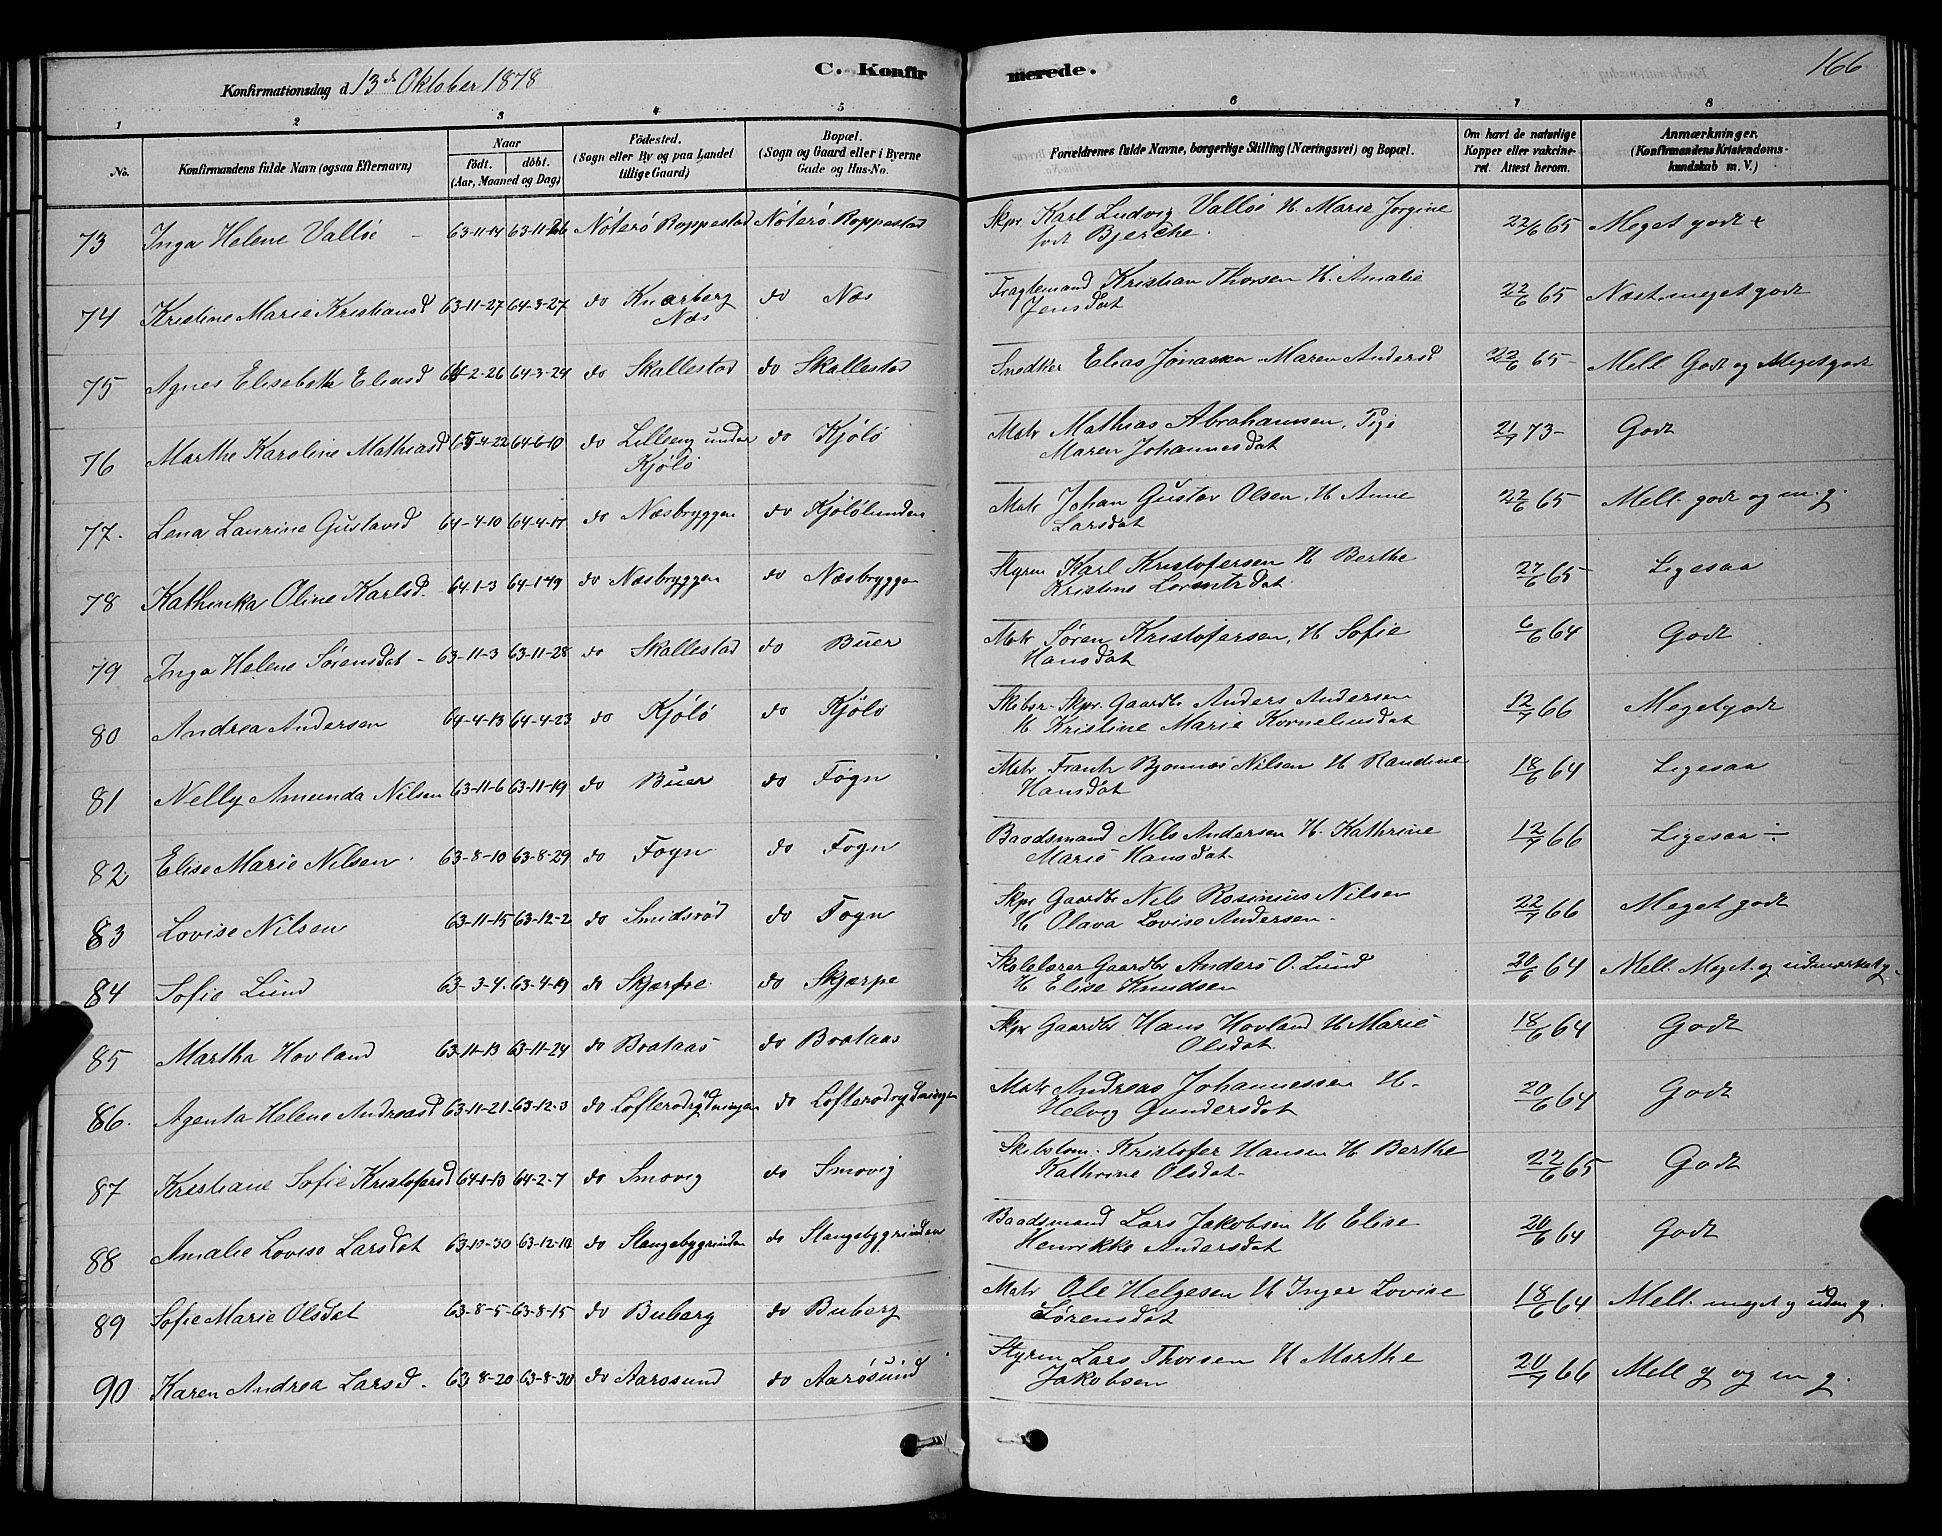 166
C. Konfirmerede.
Konfirmationsdag d 13de Oktober 1878
1 2 3 4 5 6 7 8
No. | Konfirmandens fulde Navn (ogsaa Efternavn) | Naar født. døbt. (Aar, Maaned og Dag) | Födested. (Sogn eller By og paa Landet tillige Gaard) | Bopæl. (Sogn og Gaard eller i Byerne Gade og Hus-No. | Forældrenes fulde Navne, borgerlige Stilling (Næringsvei) og Bopæl. | Om havt de naturlige Kopper eller vakcineret. Attest herom. | Anmærkninger. (Konfirmandens Kristendomskundskab m. V.)
73 Inga Helene Valløe - 63-11-14 63-11-26 Nøterø Roppestad Nøterø Roppestad Skpr Karl Ludvig Valløe H. Marie Jorgine 22/6 65 Meget godt
født Bjerche.
74 Kristine Marie Kristiansd 63-11-27 64-3-27 do Knarberg do Næs Fragtemand Kristian Thorsen H. Amalie 22/6 65 Næst meget godt
Næs Jensdat
75 Agnes Elisebeth Eliasd 64-2-26 64-3-24 do Skallestad do Skallestad Snedker Elias Jonassen Maren Andersd 22/6 65 Mell Godt og Meget godt
76 Marthe Karoline Mathiasd 65-4-22 64-6-10 do Lilleeng under do KjøLø Matr Mathias Abrahamsen, Pige 21/7 73- Godt
Kjølø Maren Johannesdat
77. Lena Laurine Gustavsd 64-4-10 64-4-17 do Næsbryggen do Kjølølunden Matr Johan Gustav Olsen. H Anne 22/6 65 Mell. godt og m. g.
Larsdat
78 Kathinka Oline Karlsd. 64-1-3 64-1-19 do Næsbryggen do Næsbryggen Styrm Karl Kristofersen H Berthe 27/6 65 Ligesaa
Kristine Lorentzdat
79 Inga Helene Sørensdat - 63-11-3 63-11-28 do Skallestad do Buer Matr Søren Kristofersen, H Sofie 6/6 64 Godt
Hansdat
80 Andrea Andersen 64-4-13 64-4-23 do Kjølø do Kjølø Skibsr. Skpr. Gaardbr Anders Andersen 12/7 66 Meget godt
H. Kristine Marie Korneliusdat
81 Nelly Amunda Nilsen 63-11-6 63-11-19 do Buer do Føgn Matr Frantz Bjonnes Nilsen H Randine 18/6 64 Ligesaa
Hansdat
82 Elise Marie Nilsen 63-8-10 63-8-29 do Føgn do Føgn Baadsmand Nils Andersen H. Kathrine 12/7 66 Ligesaa ÷
Marie Hansdat
83 Lovise Nilsen 63-11-15 63-12-2 do Smidsrød do Føgn Skpr Gaardbr Nils Rosinius Nilsen 22/7 66 Meget godt
H Olava Lovise Andersen -
84 Sofie Lund 63-3-4. 63-4-19 do Skjærpe do Skjærpe Skolelærer Gaardbr Anders O. Lund 20/6 64 Mell. Meget. og udmærket g.
H Elise Knudsen
85 Martha Hovland 63-11-13 63-11-24 do Brataas do Brataas Skpr Gaardbr Hans Hovland H Marie 18/6 64 Godt
Olsdat
86. Agenta Helene Andreasd 63-11-21 63-12-3 do Lofterødrydningen do Lofterødrydningen Matr Andreas Johannessen H. 20/6 64 Godt
Helvig Gundersdat
87 Kristiane Sofie Kristofersd 64-1-13 64-2-7 do Smovig do Smovig Skibstøm. Kristofer Hansen H Berthe 22/6 65 Godt
Kathrine Olsdat
88 Amalie Lovise Larsdat 63-10-30 63-12-12 do Slangebygrinden do Slangebygrinden Baadsmand Lars Jakobsen H Elise 20/6 64 Godt
Henrikke Andersdat
89 Sofie Marie Olsdat 63-8-5 63-8-15 do Buberg do Buberg Matr Ole Helgesen H Inger Lovise 18/6 64 Mell. meget g udm g.
Sørensdat
90 Karen Andrea Larsd. 63-8-20 63-8-30 do Aarøsund do Aarøsund Styrm Lars Thorsen H Marthe 20/7 66 Mell g og m g.
Jakobsen